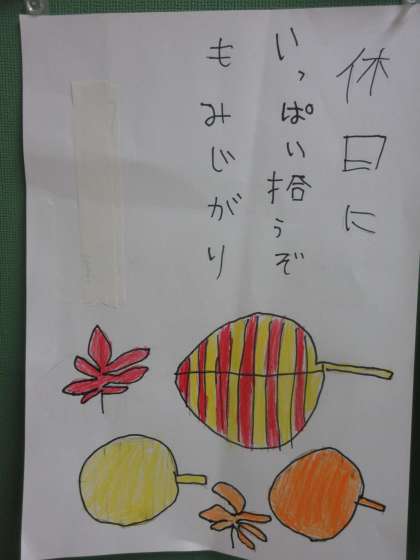 休日に
いっぱい拾うぞ
もみじがり